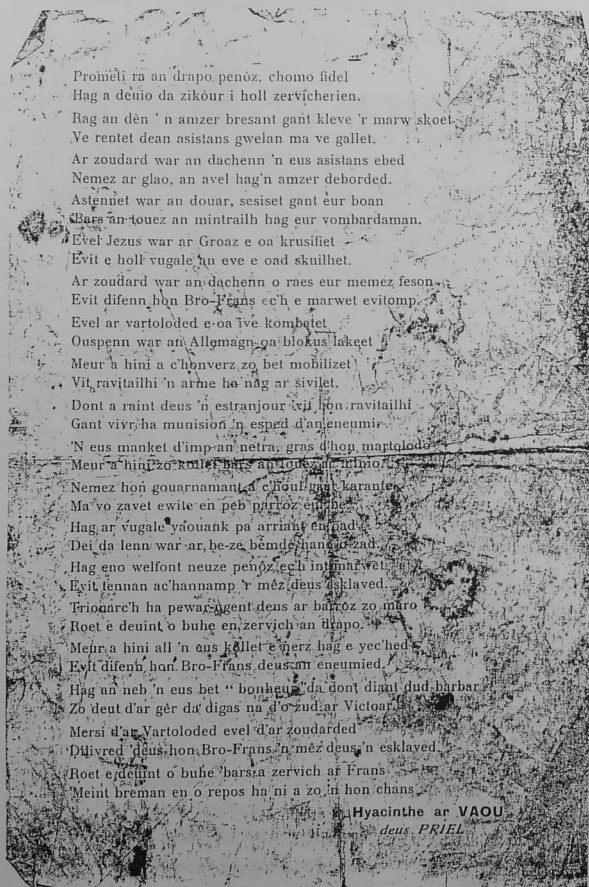 Prometi ra an drapo, penôz, chomo fidel
Hag a deuio da zikour i holl zervicherien.
Rag an dèn 'n amzer bresant gant kleve 'r marw skoet
Ve rentet dean asistans gwelan ma ve gallet.
Ar zoudard war an dachenn 'n eus asistans ebed
Nemez ar glao, an avel hag'n amzer deborded.
Astennet war an douar, sesiset gant eur boan
Bars an touez an mintrailh hag eur vombardaman.
Evel Jezus war ar Groaz e oa krusifiet
Evit e holl vugale an eve e oad skuilhet.
Ar zoudard war an dachenn o raes eur memez feson
Evit difenn hon Bro-Frans ec'h e marwet evitomp.
Evel ar vartoloded e oa ive kombatet
Ouspenn war an Allemagn oa blokus lakeet
Meur a hini a c'honverz zo bet mobilizet
Vit ravitailhi 'n arme ha nag ar sivilet.
Dont a raint deus 'n estranjour vit hon ravitailhi
Gant vivr ha munision 'n esped d'an eneumi
'N eus manket d'imp an netra, gras d'hon martolodo
Meur a hini zo kollet bars an touez ar
Nemez hon gouarnamant a c'hout gant karante
Ma vo zavet ewite en peb parroz eur be
Hag ar vugale yaouank pa arriant en oad
Dei da lenn war ar be-ze bemde hano o zad
Hag eno welfont neuze penôz ec'h int marwet
Evit lennan ac'hannamp 'r mêz deus esklaved.
Trionarc'h ha pewar-ugent deus ar barroz zo maro
Roet e deuint o buhe en zervich an drapo.
Meur a hini all 'n eus kollet e nerz hag e yec'hed
Evit difenn hon Bro-Frans deus an eneumied.
Hag an neb 'n eus bet " bonheur " da dont diant dud barbar
Zo deut d'ar gêr da digas na d'o zud ar Victoar.
Mersi d'ar Vartoloded evel d'ar zoudarded
Dilivred deus hon Bro-Frans 'n mêz deus 'n esklaved.
Roet e deuint o buhe 'bars a zervich ar Frans
Meint breman en o repos ha ni a zo 'n hon chans
Hyacinthe ar VAOU
deus PRIEL